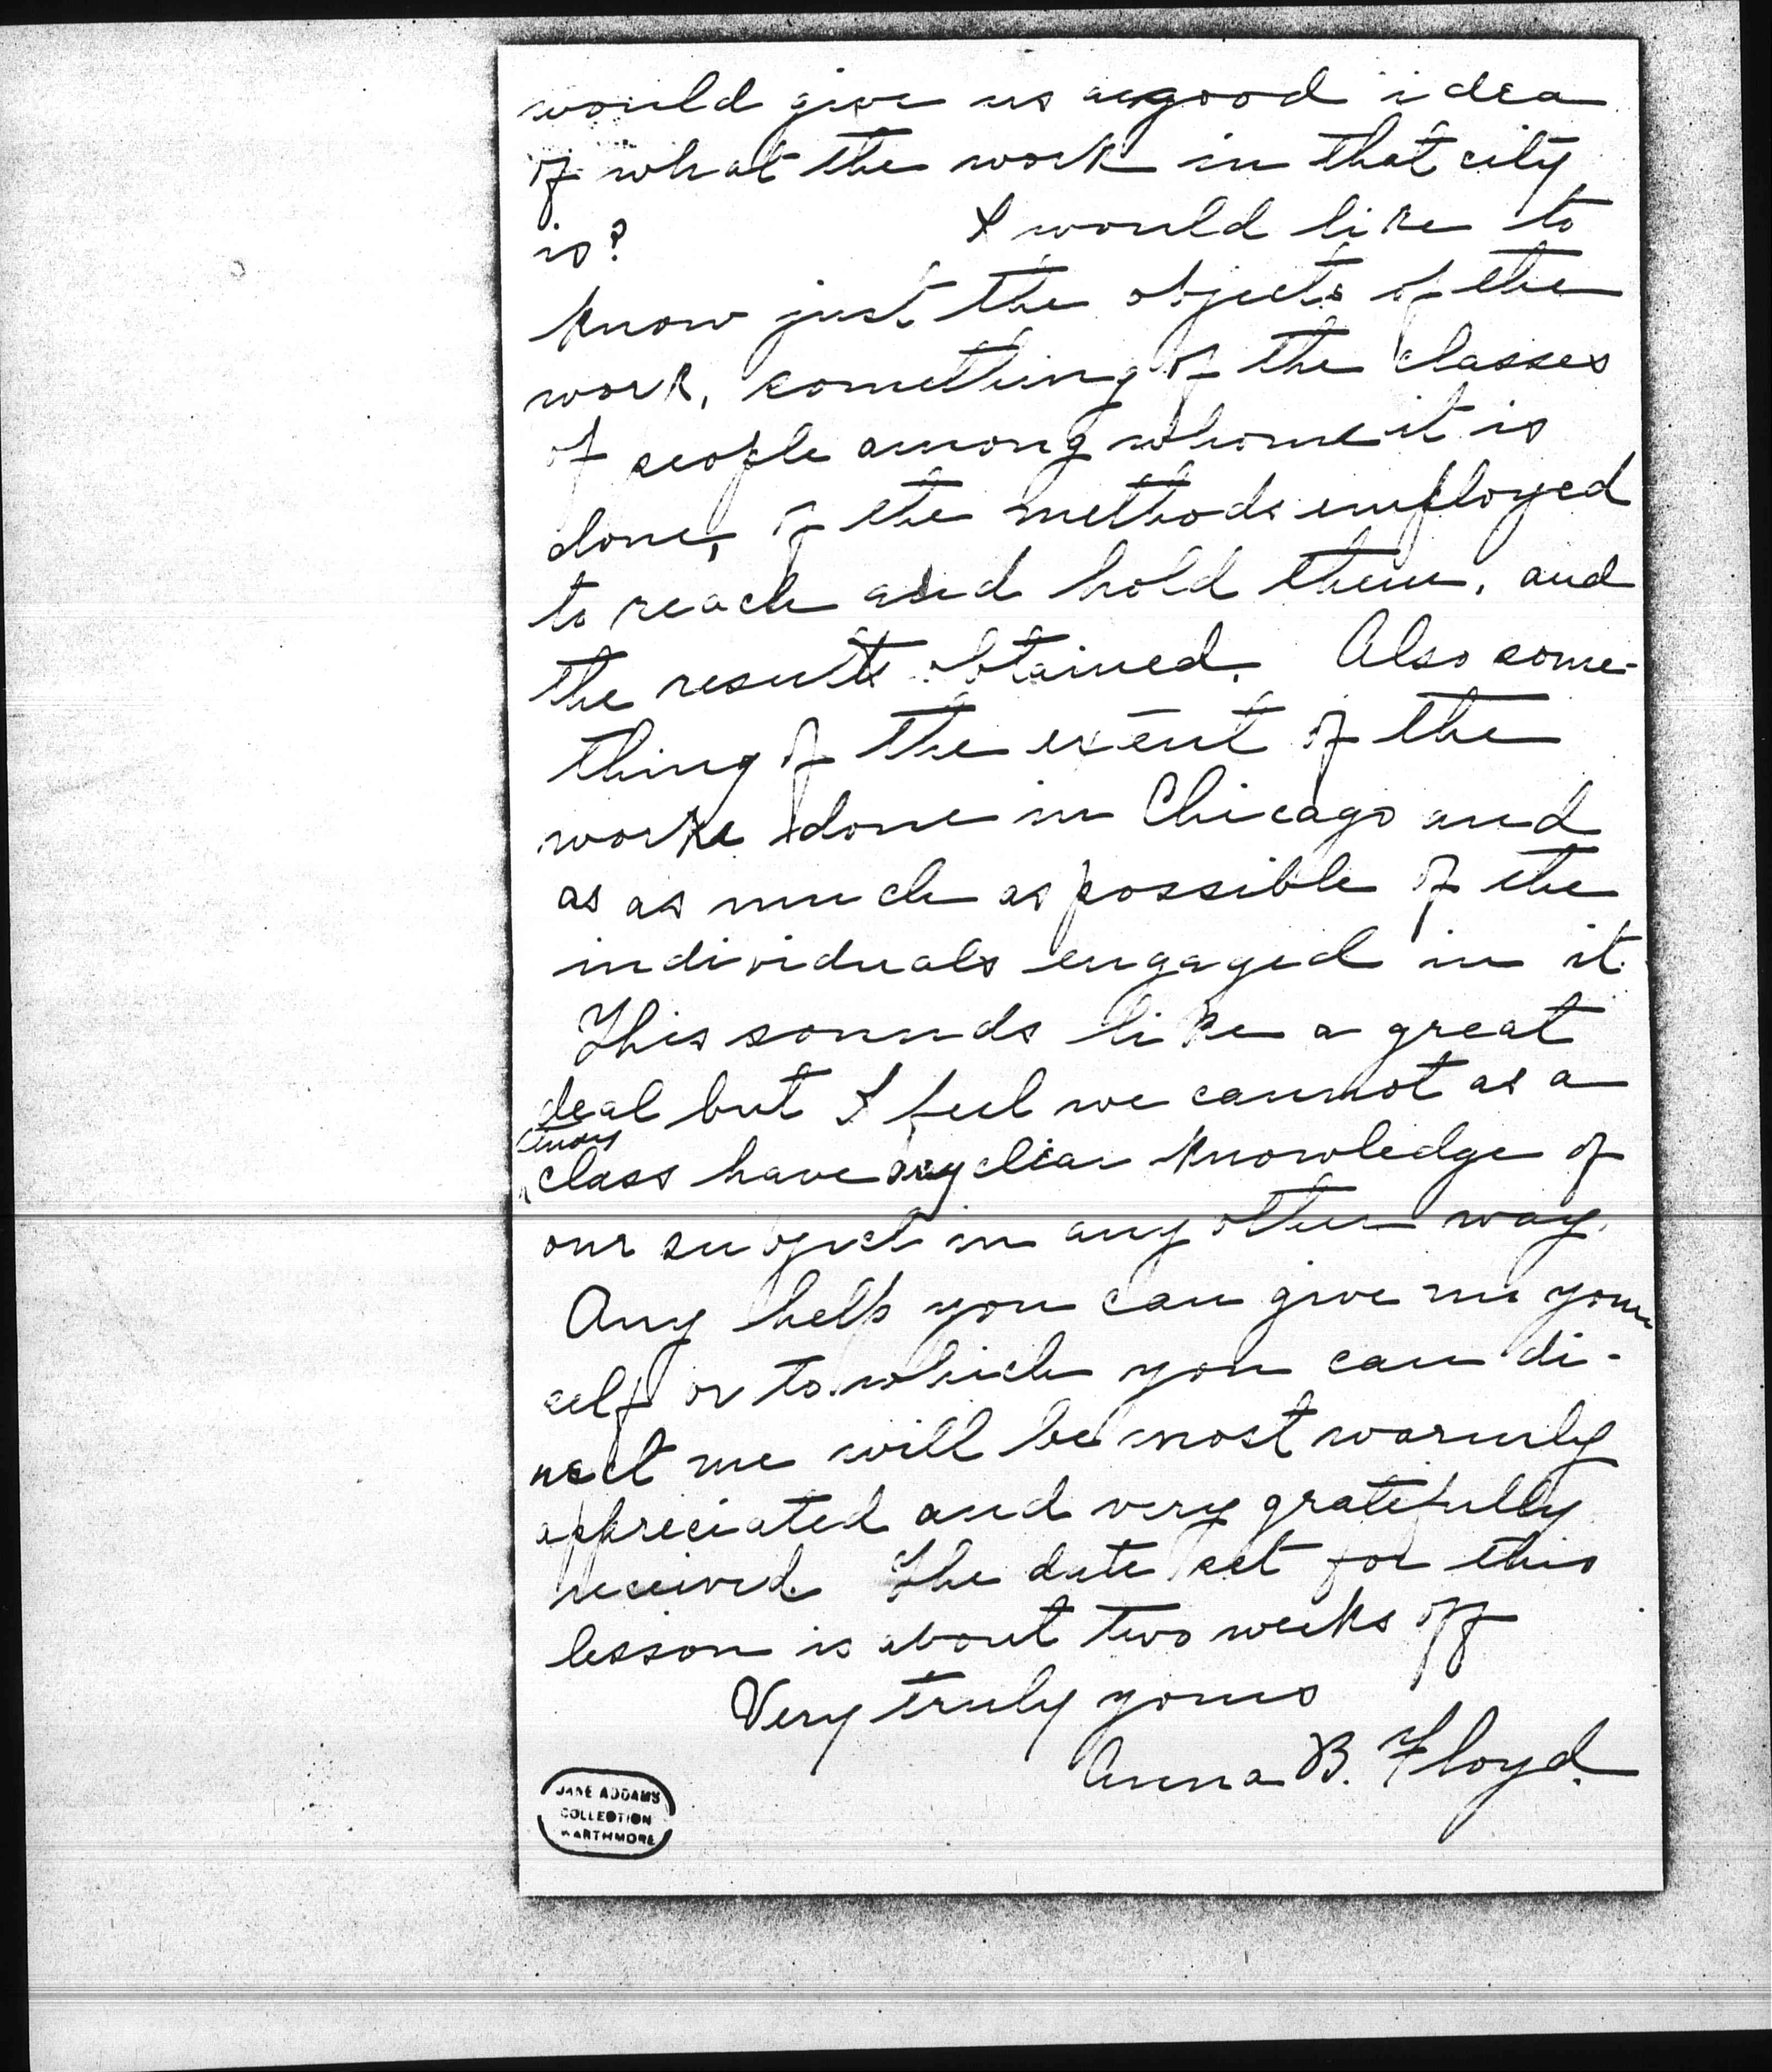 would give us a good idea
of what the work in that city
is? I would like to
know just the objects of the
work, something of the classes
of people among whom it is
done, of the methods employed
to reach and hold them, and
the results obtained. Also some-
thing of the extent of the
work done in Chicago and
as as much as possible of the
individuals engaged in it.
This sounds like a great
deal but I feel we cannot as a
class have any clear knowledge of
our subject in any other way.
Any help you can give me your
self or to which you can di-
rect me will be most warmly
appreciated and very gratefully
received. The date set for this
lesson is about two weeks off
Very truly yours
Anna B. Floyd.
JANE ADDAMS
COLLECTION
WARTHMORE